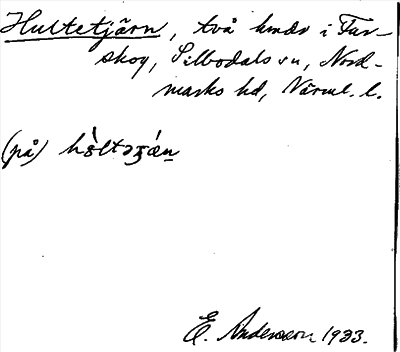 Hultetjärn, två hmdr i Fur-
skog, Silbodals sn, Nord-
marks hd, Värml. l.
(på)
E. Andersson 1933.